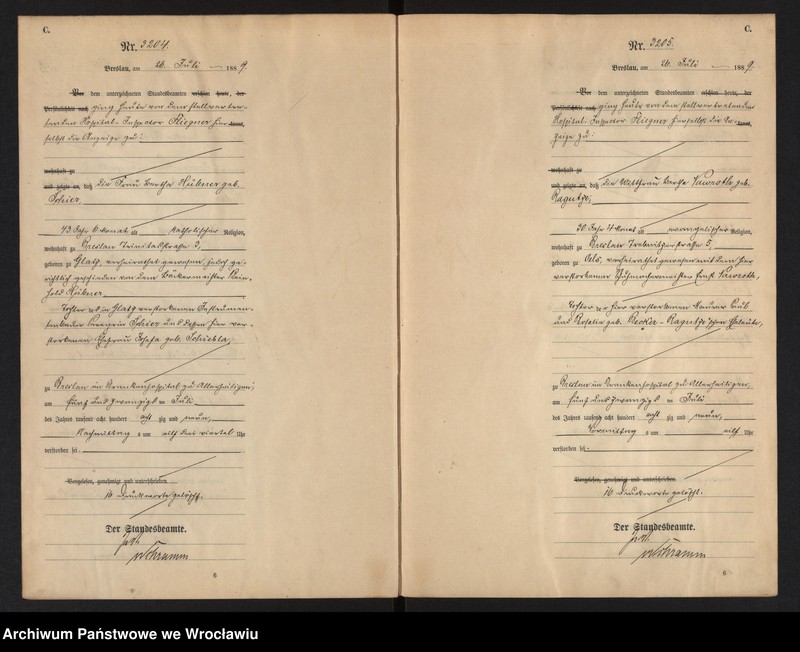 C.
Nr. 3204.
Breslau, am 26. Juli 1889.
Vor dem unterzeichneten Standesbeamten erschien heute, der
Persönlichkeit nach ging heute von dem stellvertre-
tenden Hospital-Inspector Kliegner hier kannt,
selbst die Anzeige zu:
wohnhaft zu
und zeigte an, daß die Frau Bertha Hübner geb.
43 Jahr 6 Monat alt katholischer Religion,
wohnhaft zu Breslau Trinitatsstraße 3,
geboren zu Glatz, verheirathet gewesen, jedoch ge-
richtlich geschieden von dem Bäckermeister Rein-
hold Hübner
Tochter des in Glatz verstorbenen Instrumen-
und dessen hier ver-
storbenen Ehefrau Josefa geb.
zu Breslau im Krankenhospital zu Allerheiligen,
am fünf und zwanzigsten Juli
des Jahres tausend acht hundert acht zig und neun,
Nachmittag s um elf ein viertel Uhr
verstorben sei.
Vorgelesen, genehmigt und unterschrieben
16 Druckworte gelöscht.
Der Standesbeamte.
6
C.
Nr. 3205.
Breslau, am 26. Juli 1889.
Vor dem unterzeichneten Standesbeamten erschien heute, der
Persönlichkeit nach ging heute von dem stellvertretenden
Hospital-Inspector Kliegner hierselbst die An- kannt,
zeige zu:
wohnhaft zu
und zeigte an, daß die Wittfrau Bertha Nawroth geb.
Ragutzky,
30 Jahr 4 Monat alt evangelischer Religion,
wohnhaft zu Breslau Trebnitzerstraße 5,
geboren zu Oels, verheirathet gewesen mit dem hier
verstorbenen Schuhmachermeister Ernst Naworoth,
Tochter der hier verstorbenen Maurer
und Rosalie geb. Becker-Ragutzky'schen Eheleute,
zu Breslau im Krankenhospital zu Allerheiligen,
am fünf und zwanzigsten Juli
des Jahres tausend acht hundert acht zig und neun,
Vormittag s um elf Uhr
verstorben sei.
Vorgelesen, genehmigt und unterschrieben
16 Druckworte gelöscht.
Der Standesbeamte.
6
Archiwum Państwowe we Wrocławiu